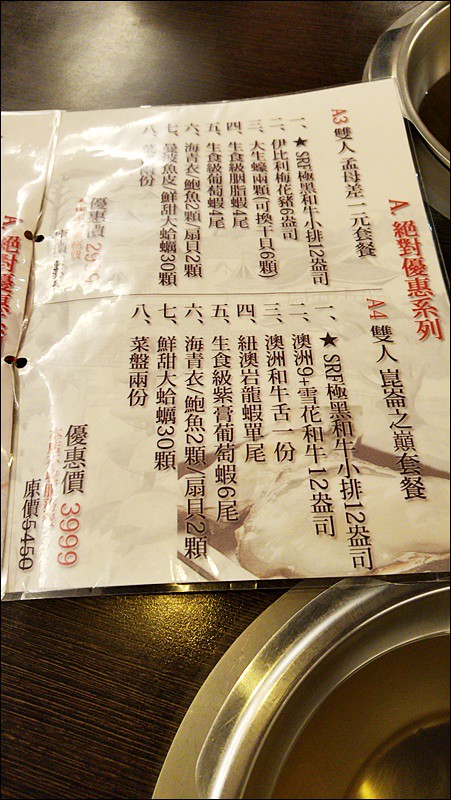 A. 絕對優惠系列
A3 雙人 孟母差一元套餐
一、★ SRF極黑和牛小排12盎司
二、伊比利梅花豬6盎司
三、大生蠔兩顆(可換干貝6顆)
四、生食級胭脂蝦4尾
五、生食級葡萄蝦4尾
六、海青衣/鮑魚2顆/扇貝2顆
七、曼波魚皮/鮮甜大蛤蠣30顆
八、菜盤兩份
優惠價
A4 雙人 崑崙之巔套餐
一、★ SRF極黑和牛小排12盎司
二、澳洲9+雪花和牛12盎司
三、澳洲和牛舌一份
四、紐澳岩龍蝦單尾
五、生食級紫膏葡萄蝦6尾
六、海青衣/鮑魚2顆/扇貝2顆
七、鮮甜大蛤蠣30顆
八、菜盤兩份
優惠價 3999
原價5450
A. 絕對優惠系